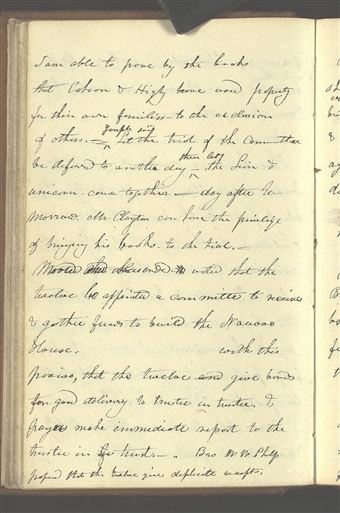 I am able to prove by the books
that Cahoon & Higby have used property
for their own families - to the exclusion
of others. = Joseph said Let the trial of the Committee
be defered to another day - then let the Lion &
unicorn come together - day after to
morrow. Mr Clayton can have the privilige
of bringing his books to the trial. -
Moved and seconded & voted that the
twelve be appointed a committee to receive
& gather funds to build the Nauvoo
House. with this
proviso, that the twelve give bonds
for good delivery to trustee in trustee, &
make immediate report to the
trustee in trust. - . Bro W. W. Phelps
proposd that the twelve give duplicate receipts.